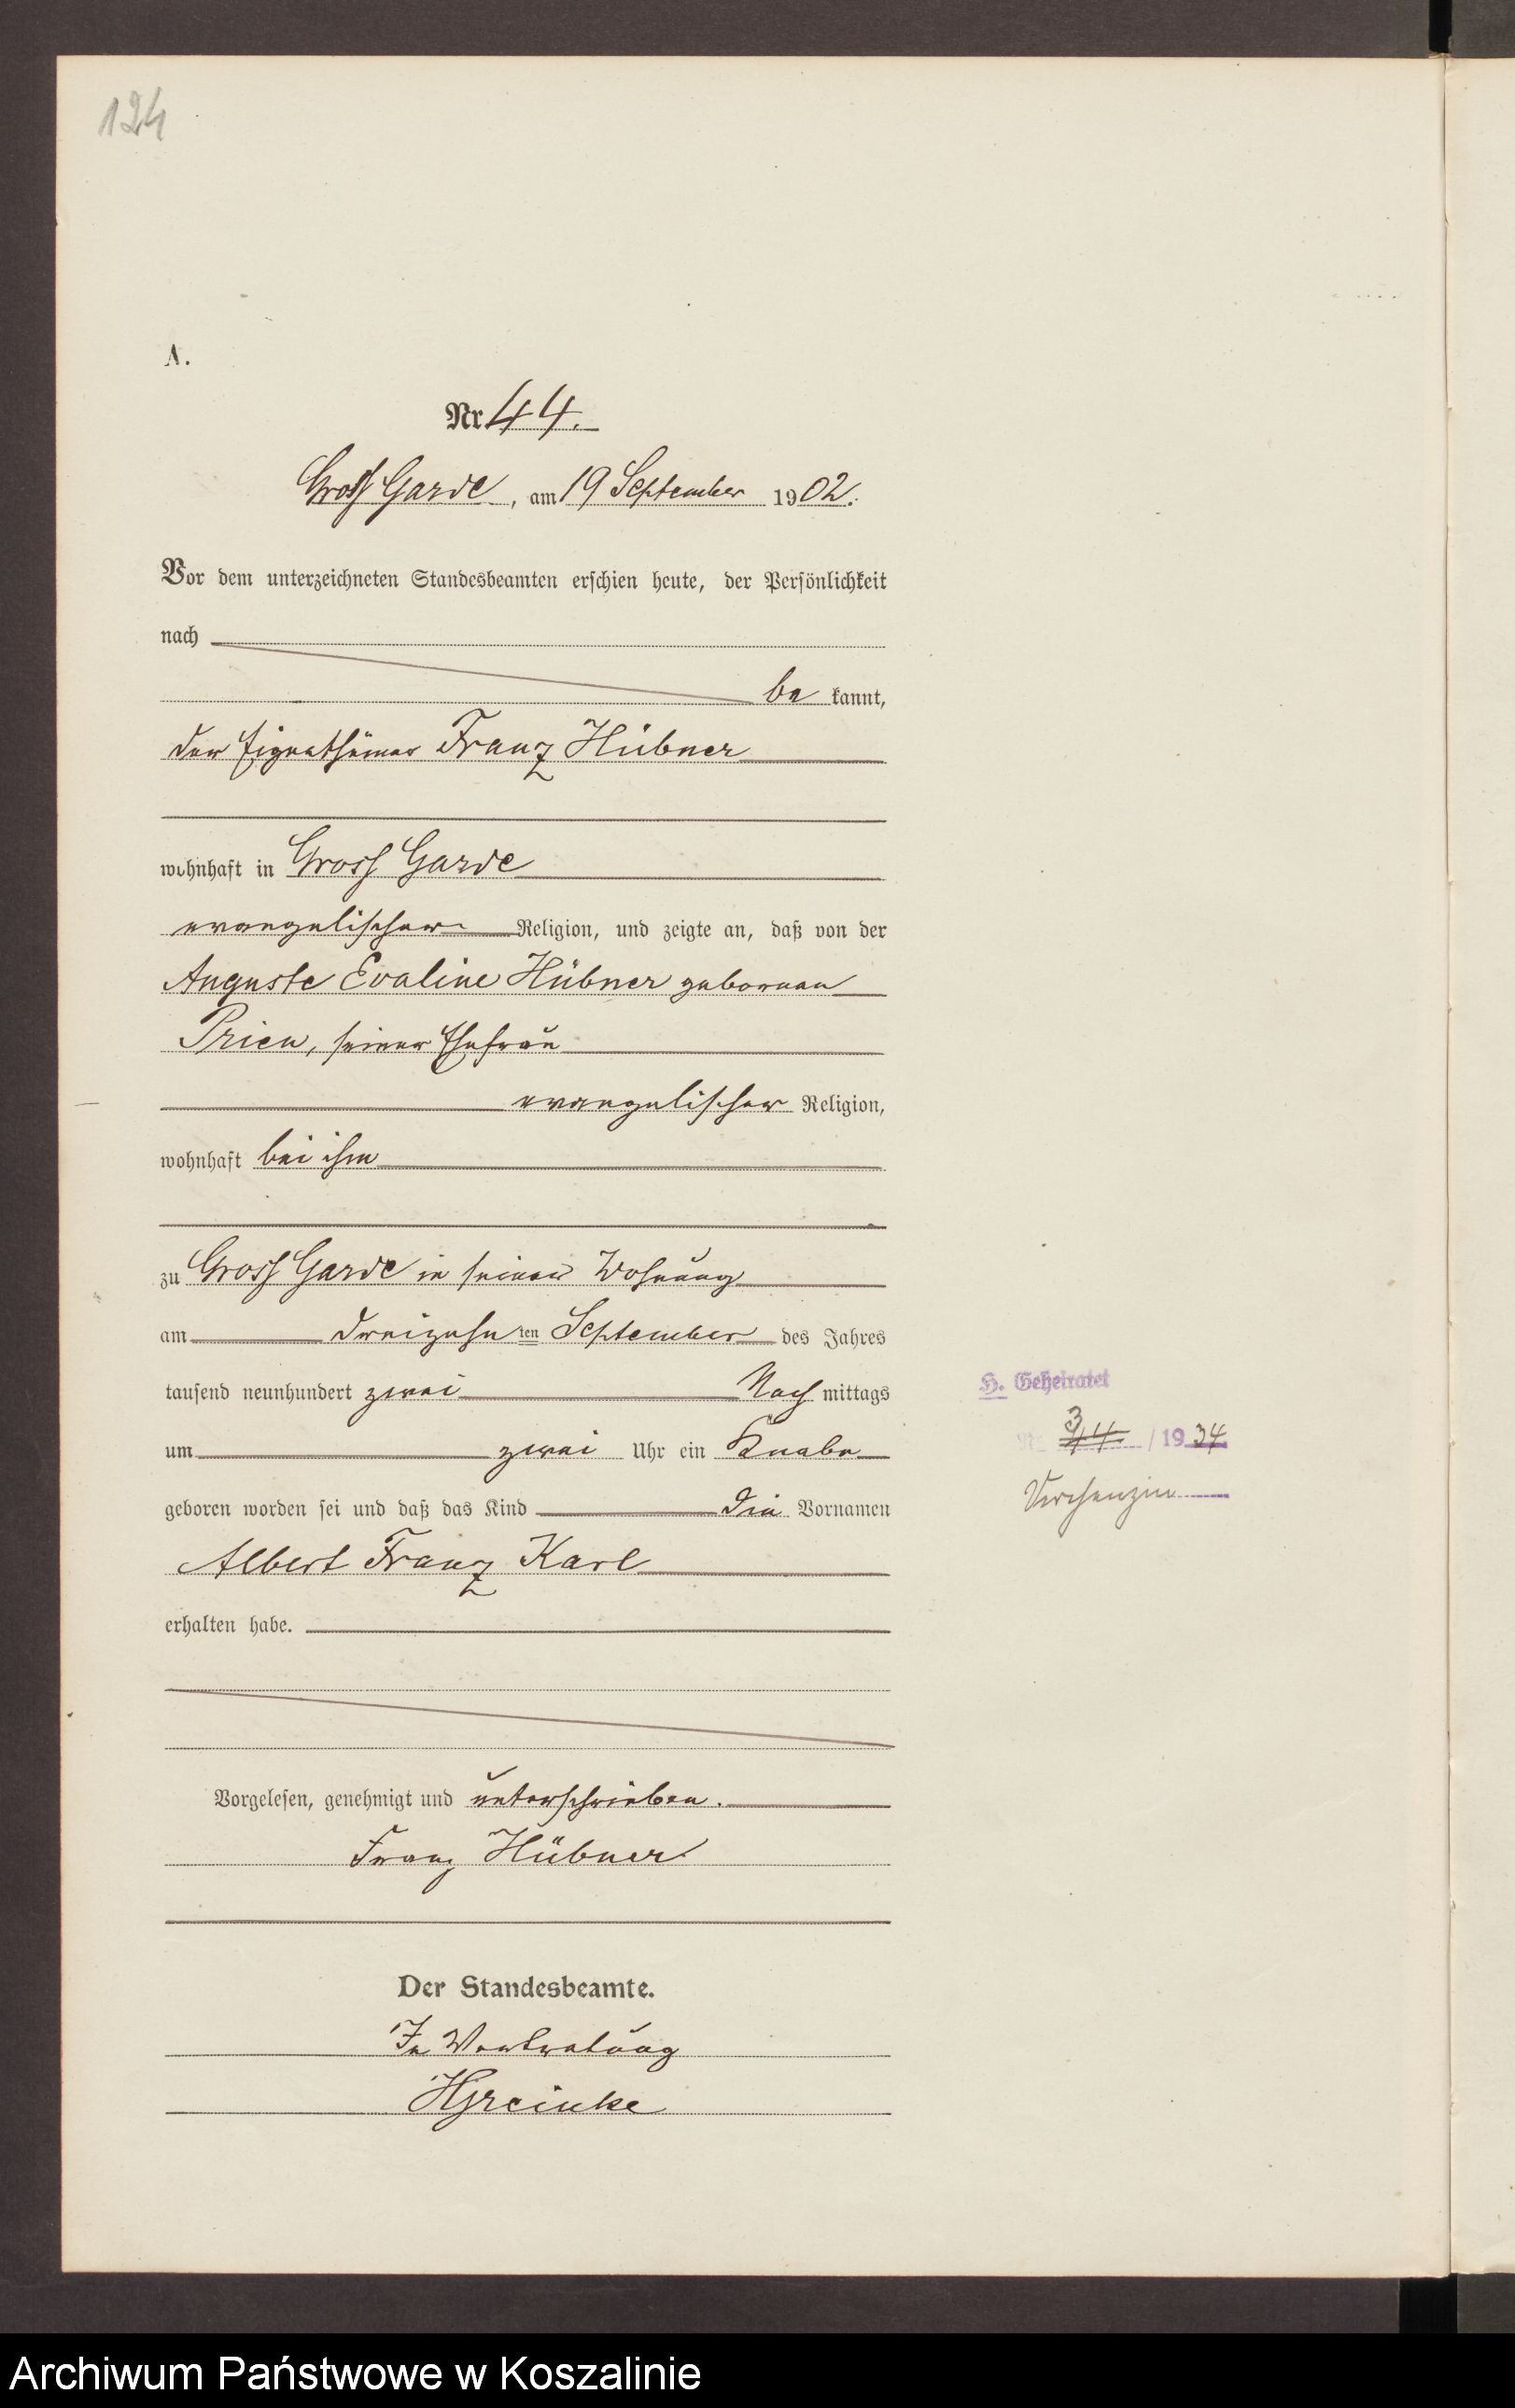 124
A.
Nr 44.
Gross Garde, am 19 September 1902.
Vor dem unterzeichneten Standesbeamten erschien heute, der Persönlichkeit
nach
be kannt,
der Eigenthümer Franz Hübner
wohnhaft in Gross Garde
evangelischer Religion, und zeigte an, daß von der
Auguste Evaline Hübner geborenen
Prien, seiner Ehefrau
evangelischer Religion,
wohnhaft bei ihm
zu Gross Garde in seiner Wohnung
am dreizehn ten September des Jahres
tausend neunhundert zwei Nach mittags
um zwei Uhr ein Knabe
geboren worden sei und daß das Kind die Vornamen
Albert Franz Karl
erhalten habe.
Vorgelesen, genehmigt und unterschrieben.
Franz Hübner
Der Standesbeamte.
In Vertretung
HGreinke
H. Geheiratet
Nr. 3 / 1934
Virchenzin
Archiwum Państwowe w Koszalinie